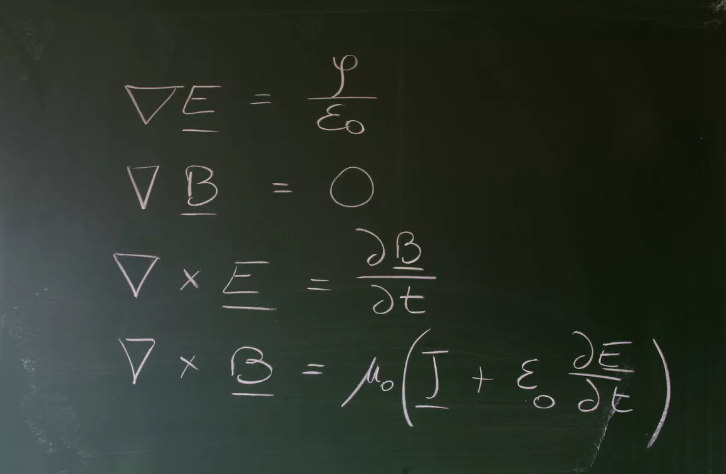 ∇E = φ/ε₀
∇ B = 0
∇ × E = ∂B/∂t
∇ × B = μ₀(J + ε₀ ∂E/∂t)